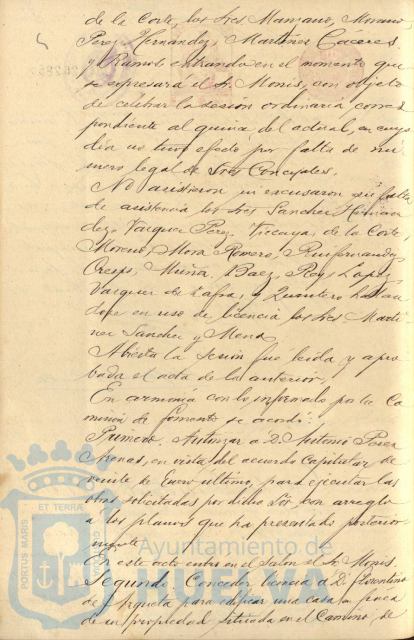 de la Corte, los Sres Manzano, Moreno
Perez Hernandez, Martinez Cáceres
y Ramole entrando en el momento que
se expresará el Sr. Monis, con objeto
de celebrar la sesion ordinaria corres
pondiente al quince del actual, en cuyo
dia no tuvo efecto por falta de nú
mero legal de Sres Concejales.
No asistieron ni excusaron su falta
de asistencia los Sres Sanchez Hernan
dez, Vazquez Perez, Vizcaya, de la Corte,
Moreno, Mora Romero, Ruifernandez
Crespo, Muñiz, Baez, Rey Lopez,
Vazquez de Zafra, y Quintero
en uso de licencia los Sres Marti
nez Sanchez y Mena.
Abierta la Sesion fue leida y apro
bada el acta de la anterior.
En armonia con lo informado por la Co
mision de fomento se acordó:
Primero. Autorizar á D. Antonio Perez
Arenas, en vista del acuerdo Capitular de
veinte de Enero último, para ejecutar las
obras solicitadas por dicho Sor. con arreglo
a los planos que ha presentado posterior
mente
En este acto entró en el Salon el Sr. Monis
Segundo. Conceder licencia a D. Florentino
de Azqueta para edificar una casa en finca
de su propiedad situada en el Camino, de
PORTUS MARIS
ET TERRAE
CUSTODIA
Ayuntamiento de
HUELVA